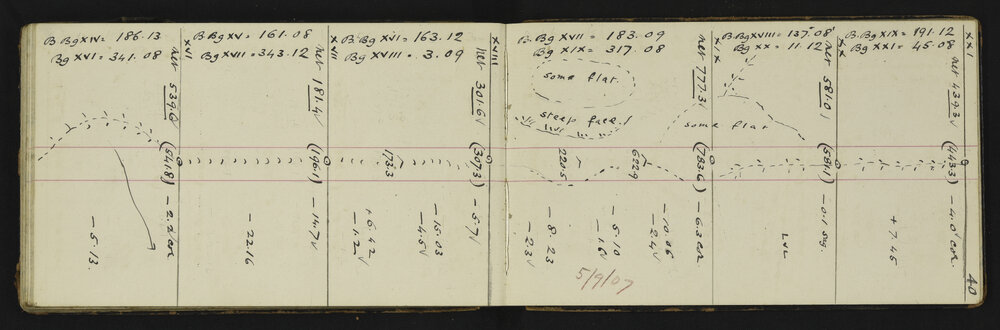 B. Bg XIV = 186.13
Bg XVI = 341.08
XVI
Net 539.0
(541.8) - 2.2 cor.
- 5.13.
B Bg XV = 161.08
Bg XVII = 343.12
XVII
Net 181.4 √
(196.1) - 14.7 √
- 22.16
B. Bg XVI = 163.12
Bg XVIII = 3.09
XVIII
Net 301.6 √
(307.3) - 5.7 √
173.3
- 15.03
- 4.5 √
+ 6.42
- 1.2 √
B. Bg XVII = 183.09
Bg XIX = 317.08
XIX
some flat.
steep face!
Net 777.3
(783.6) - 6.3 cor
622.9
- 10.06
- 2.4 √
220.5
- 5.10
- 1.6 √
- 8.23
- 2.3 √
5/9/07
B. Bg XVIII = 137.08
Bg XX = 11.12
XX
some flat
Net 581.0
(581.1) - 0.1 seg.
LVL
B. Bg XIX = 191.12
Bg XXI = 45.08
XXI
Net 439.3 √
(443.3) - 4.0 cor.
+ 7.45
40